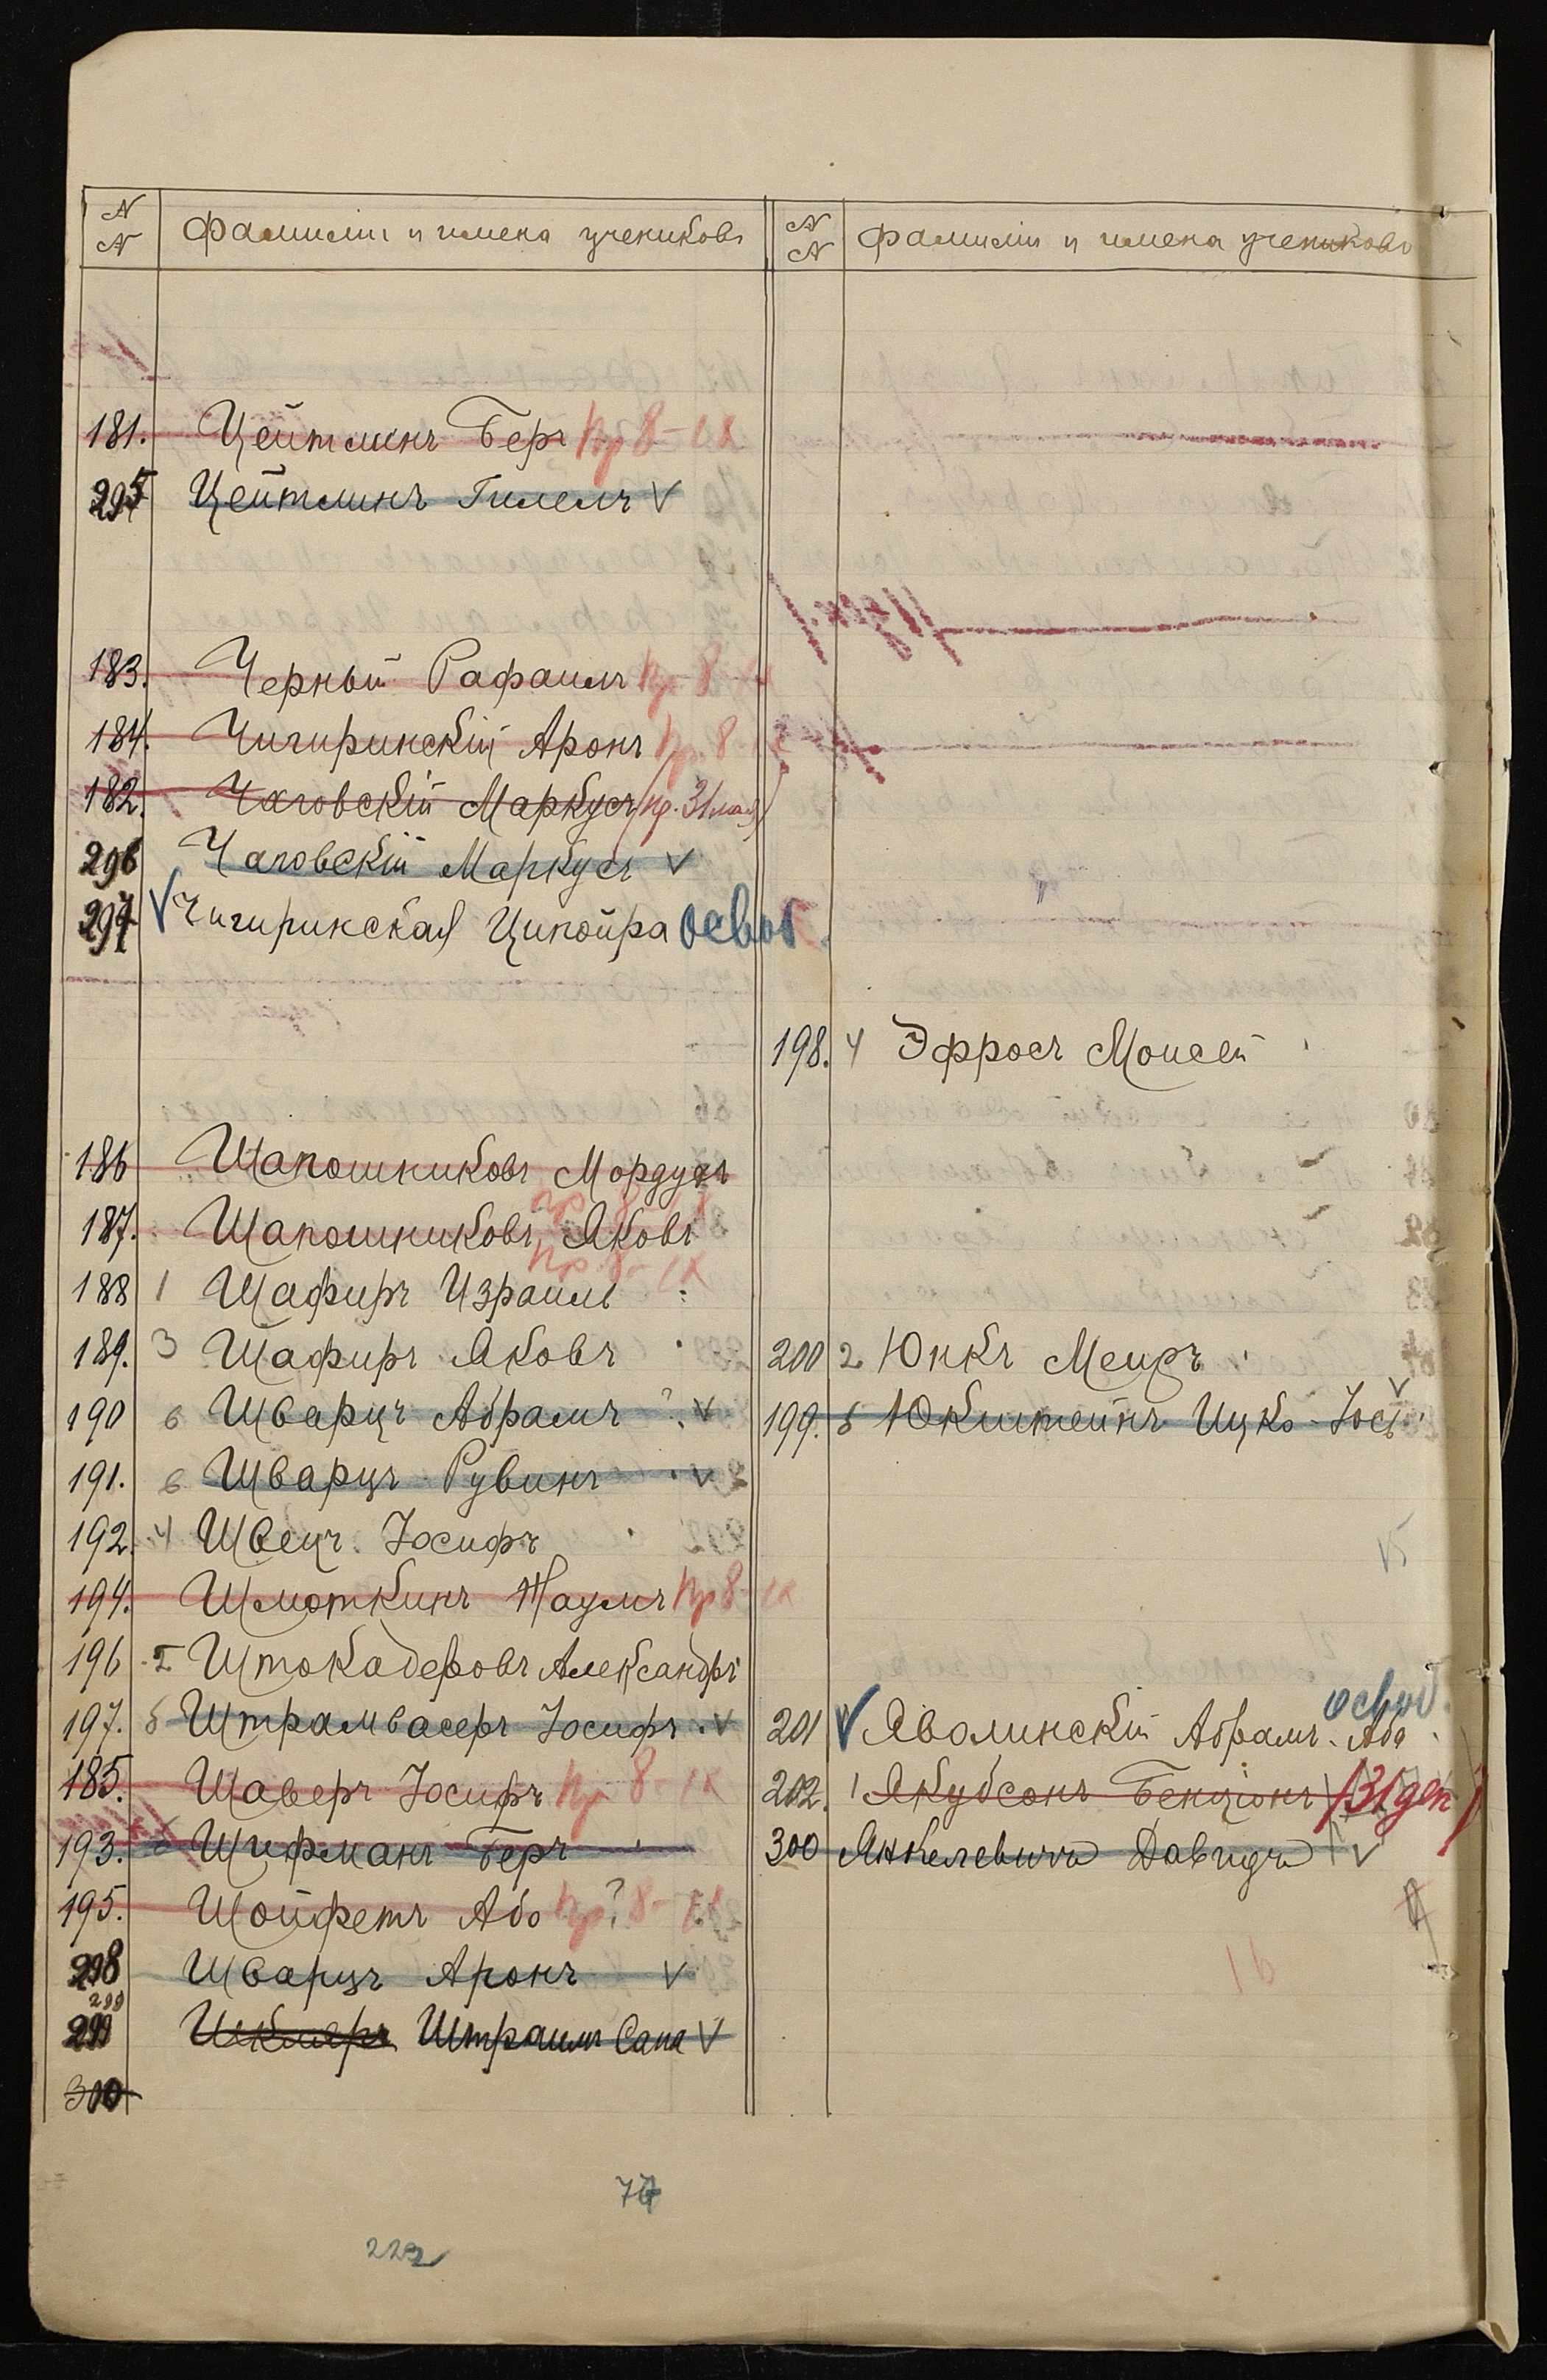 N N Фамилiи и имена учениковъ
181. Цейтлинъ Беръ Пр 8-IX
295 Цейтлинъ Гилель V
183. Черный Рафаилъ Пр 8-IX
184. Чигиринскiй Аронъ Пр. 8-IX
182. Чаговскiй Маркусъ (пр. 31 мая)
296 Чаговскiй Маркусъ V
297 V Чигиринская Ципойра освоб.
186 Шапошниковъ Мордухъ
пр 8-IX
187. Шапошниковъ Яковъ
Пр. 8-IX
188 1 Шафиръ Израиль
189. 3 Шафиръ Яковъ
190 6 Шварцъ Абрамъ ? V
191. 6 Шварцъ Рувинъ V
192. 4 Швецъ Iосифъ
194. Шмоткинъ Наумъ Пр 8-IX
196 Штокадеровъ Александръ
197. 5 Штрамвасеръ Iосифъ V
185. Шаверъ Iосифъ Пр 8-IX
193. Шифманъ Беръ
195. Шойфетъ Або Пр. 8-IX ?
298 Шварцъ Аронъ V
299
299 Штраимъ Сана V
300
N N Фамилiи и имена учениковъ
198. 4 Эфросъ Моисей
200 2 Юнкъ Меиръ
199. 5 Юкштейнъ Ицко-Iос. V
15
освоб.
201 V Яволинскiй Абрамъ-Аба
202. 1 Якубсонъ Бенцiонъ (31 дек)
300 Янкелевичъ Давидъ V
16
222